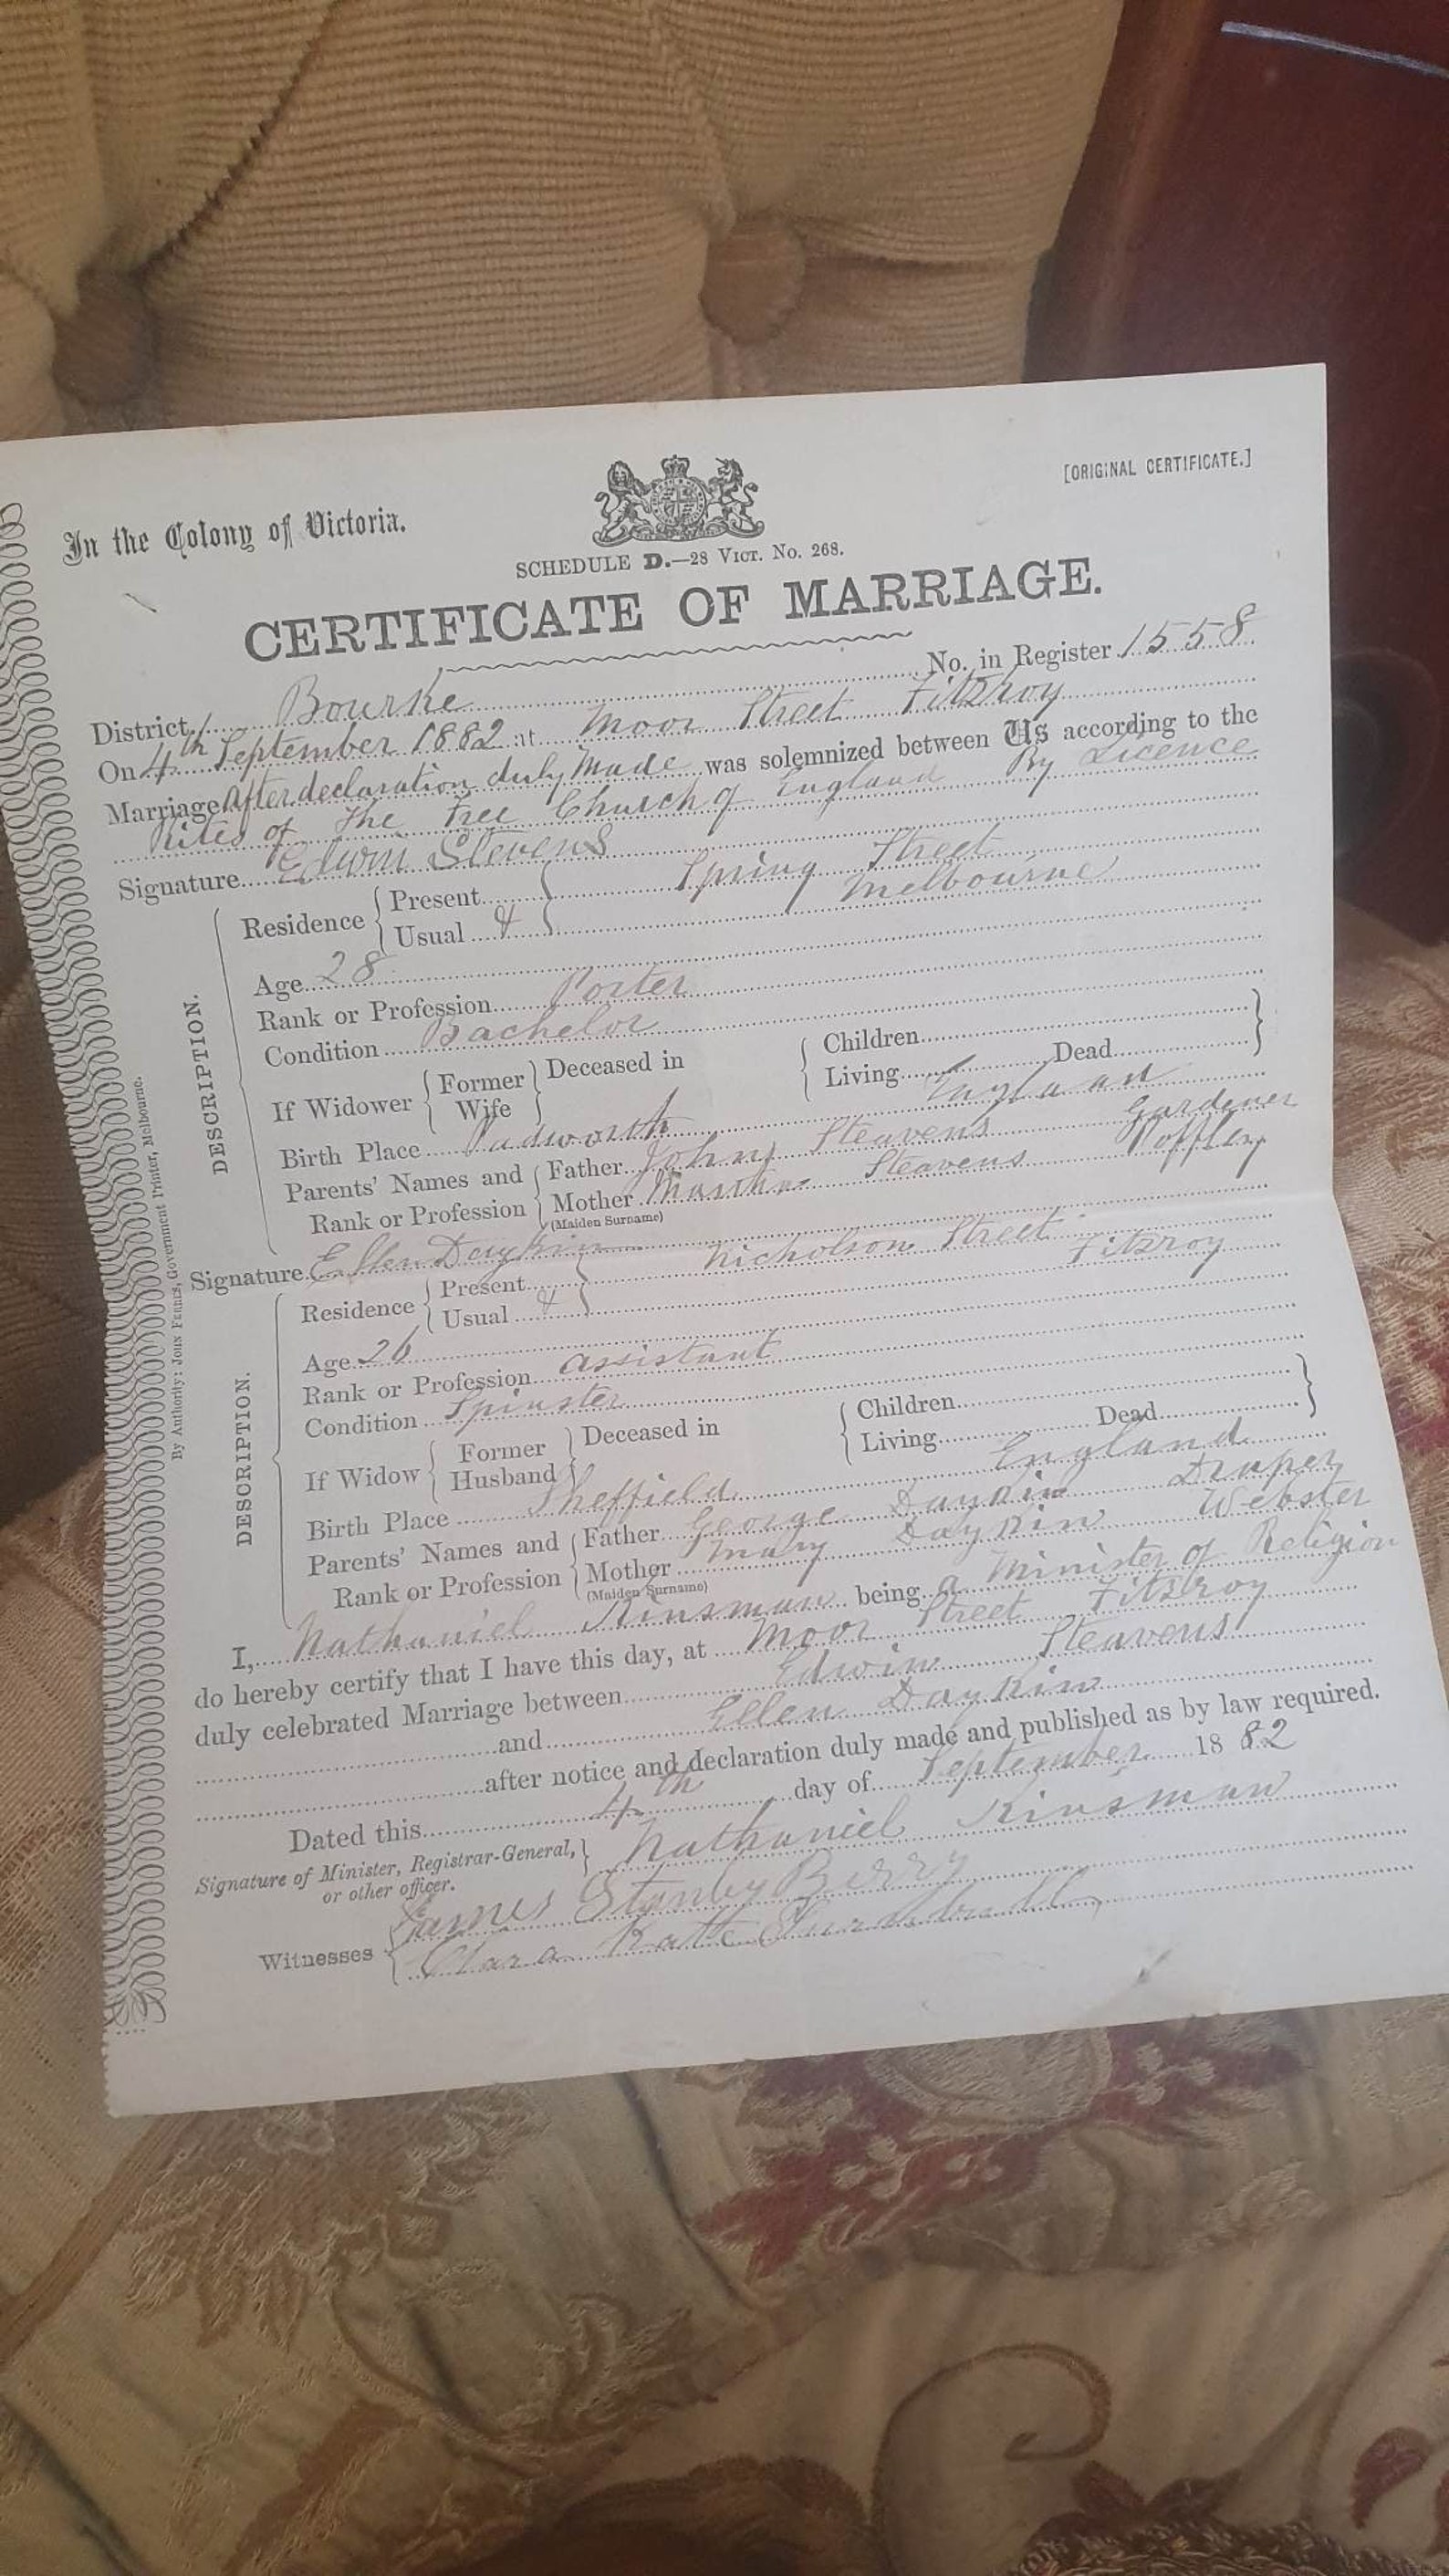 [ORIGINAL CERTIFICATE.]
In the Colony of Victoria.
SCHEDULE D.—28 VICT. No. 268.
CERTIFICATE OF MARRIAGE.
No. in Register 1558
District Bourke
On 4th September 1882 at Moor Street Fitzroy
Marriage After declaration duly Made was solemnized between Us according to the
Rites of The Free Church of England By Licence
Signature Edwin Stevens
Residence { Present Spring Street
Usual & } Melbourne
Age 28
Rank or Profession Porter
Condition Bachelor
If Widower { Former Wife } Deceased in { Children Living Dead }
Birth Place Padworth England
Parents' Names and { Father John Steavens Gardener
Rank or Profession { Mother Martha Steavens Poffley
(Maiden Surname)
Signature Ellen Daykin
Residence { Present Nicholson Street
Usual & } Fitzroy
Age 26
Rank or Profession assistant
Condition Spinster
If Widow { Former Husband } Deceased in { Children Living Dead }
Birth Place Sheffield England
Parents' Names and { Father George Daykin Draper
Rank or Profession { Mother Mary Daykin Webster
(Maiden Surname)
I, Nathaniel Kinsman being a Minister of Religion
do hereby certify that I have this day, at Moor Street Fitzroy
duly celebrated Marriage between Edwin Steavens
and Ellen Daykin
after notice and declaration duly made and published as by law required.
Dated this 4th day of September 1882
Signature of Minister, Registrar-General, } Nathaniel Kinsman
or other officer.
Witnesses { James Stanley Berry
Clara Kate
DESCRIPTION.
DESCRIPTION.
By Authority: JOHN FERRES, Government Printer, Melbourne.